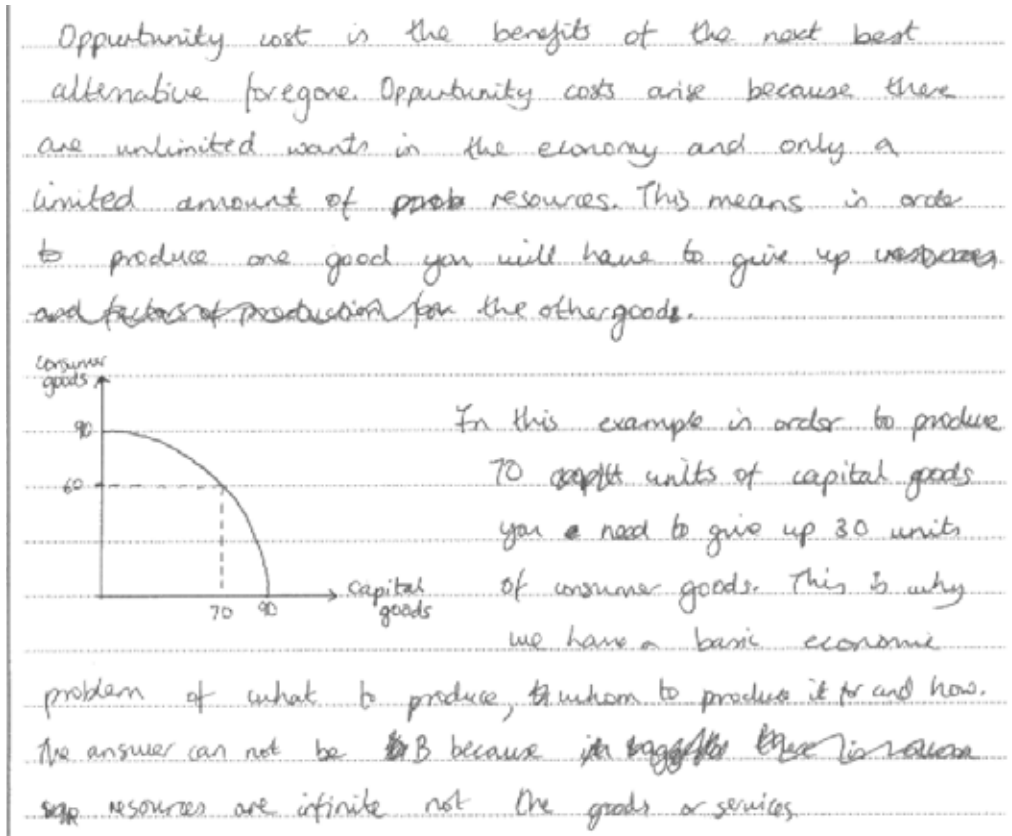 Oppurtunity cost is the benefits of the next best
alternative foregone. Oppurtunity costs arise because there
are unlimited wants in the economy and only a
limited amount of resources. This means in order
to produce one good you will have to give up
the other goods.
consumer
goods
90
60
70 90
capital
goods
In this example in order to produce
70 units of capital goods
you need to give up 30 units
of consumer goods. This is why
we have a basic economic
problem of what to produce, whom to produce it for and how.
The answer can not be B because
resources are infinite not the goods or services